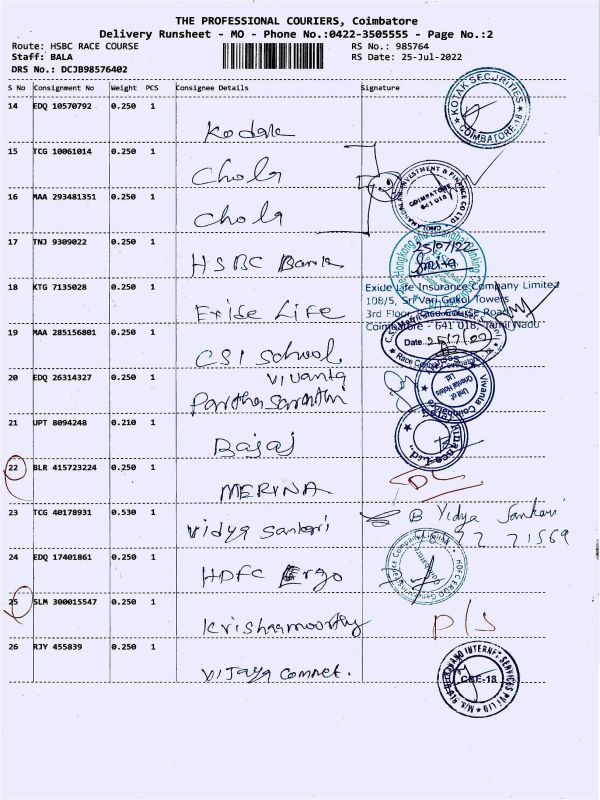 THE PROFESSIONAL COURIERS, Coimbatore
Delivery Runsheet - MO - Phone No.:0422-3505555 - Page No.:2
Route: HSBC RACE COURSE RS No.: 985764
Staff: BALA RS Date: 25-Jul-2022
DRS No.: DCJB98576402
S No Consignment No Weight PCS Consignee Details Signature
14 EDQ 10570792 0.250 1
KOTAK SECURITIES
COIMBATORE-18
Kodak
15 TCG 10061014 0.250 1
Chola
INVESTMENT & FINANCE CO LTD
COIMBATORE
641 018
16 MAA 293481351 0.250 1
Chola
17 TNJ 9309022 0.250 1
25/07/22
HSBC Bank
18 KTG 7135028 0.250 1
Exide Life Insurance Company Limited
108/5, Sri Vari Gokul Towers
3rd Floor, Race Course Road
Coimbatore - 641 018, Tamil Nadu
Exide Life
19 MAA 285156801 0.250 1
Date 25/7/22
CSI School
20 EDQ 26314327 0.250 1
Vivanta
Vivanta Coimbatore
Unit of
Oriental Hotels
Ltd
21 UPT 8094248 0.210 1
Bajaj
22 BLR 415723224 0.250 1
MERYNA
23 TCG 40178931 0.530 1
Vidya Sankari
B Vidya Sankari
24 EDQ 17401861 0.250 1
HDFC Ergo
25 SLM 300015547 0.250 1
Krishnamoorthy
26 RJY 455839 0.250 1
Vijaya Comnet.
INTERNET SERVICES PVT LTD
CBE-18